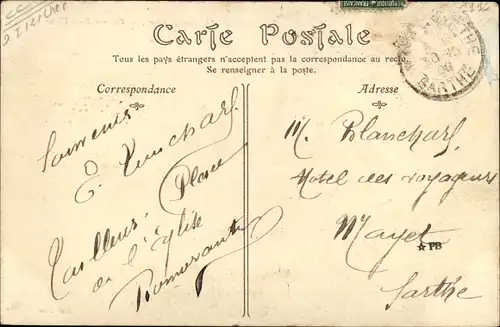 Carte Postale
Tous les pays étrangers n'acceptent pas la correspondance au recto
Se renseigner à la poste.
Correspondance
Adresse
Souvenir
E.
Tailleur, Place
de l'Église
M. Blanchard
Hotel des voyageurs
Mayet
PB
Sarthe
SARTHE